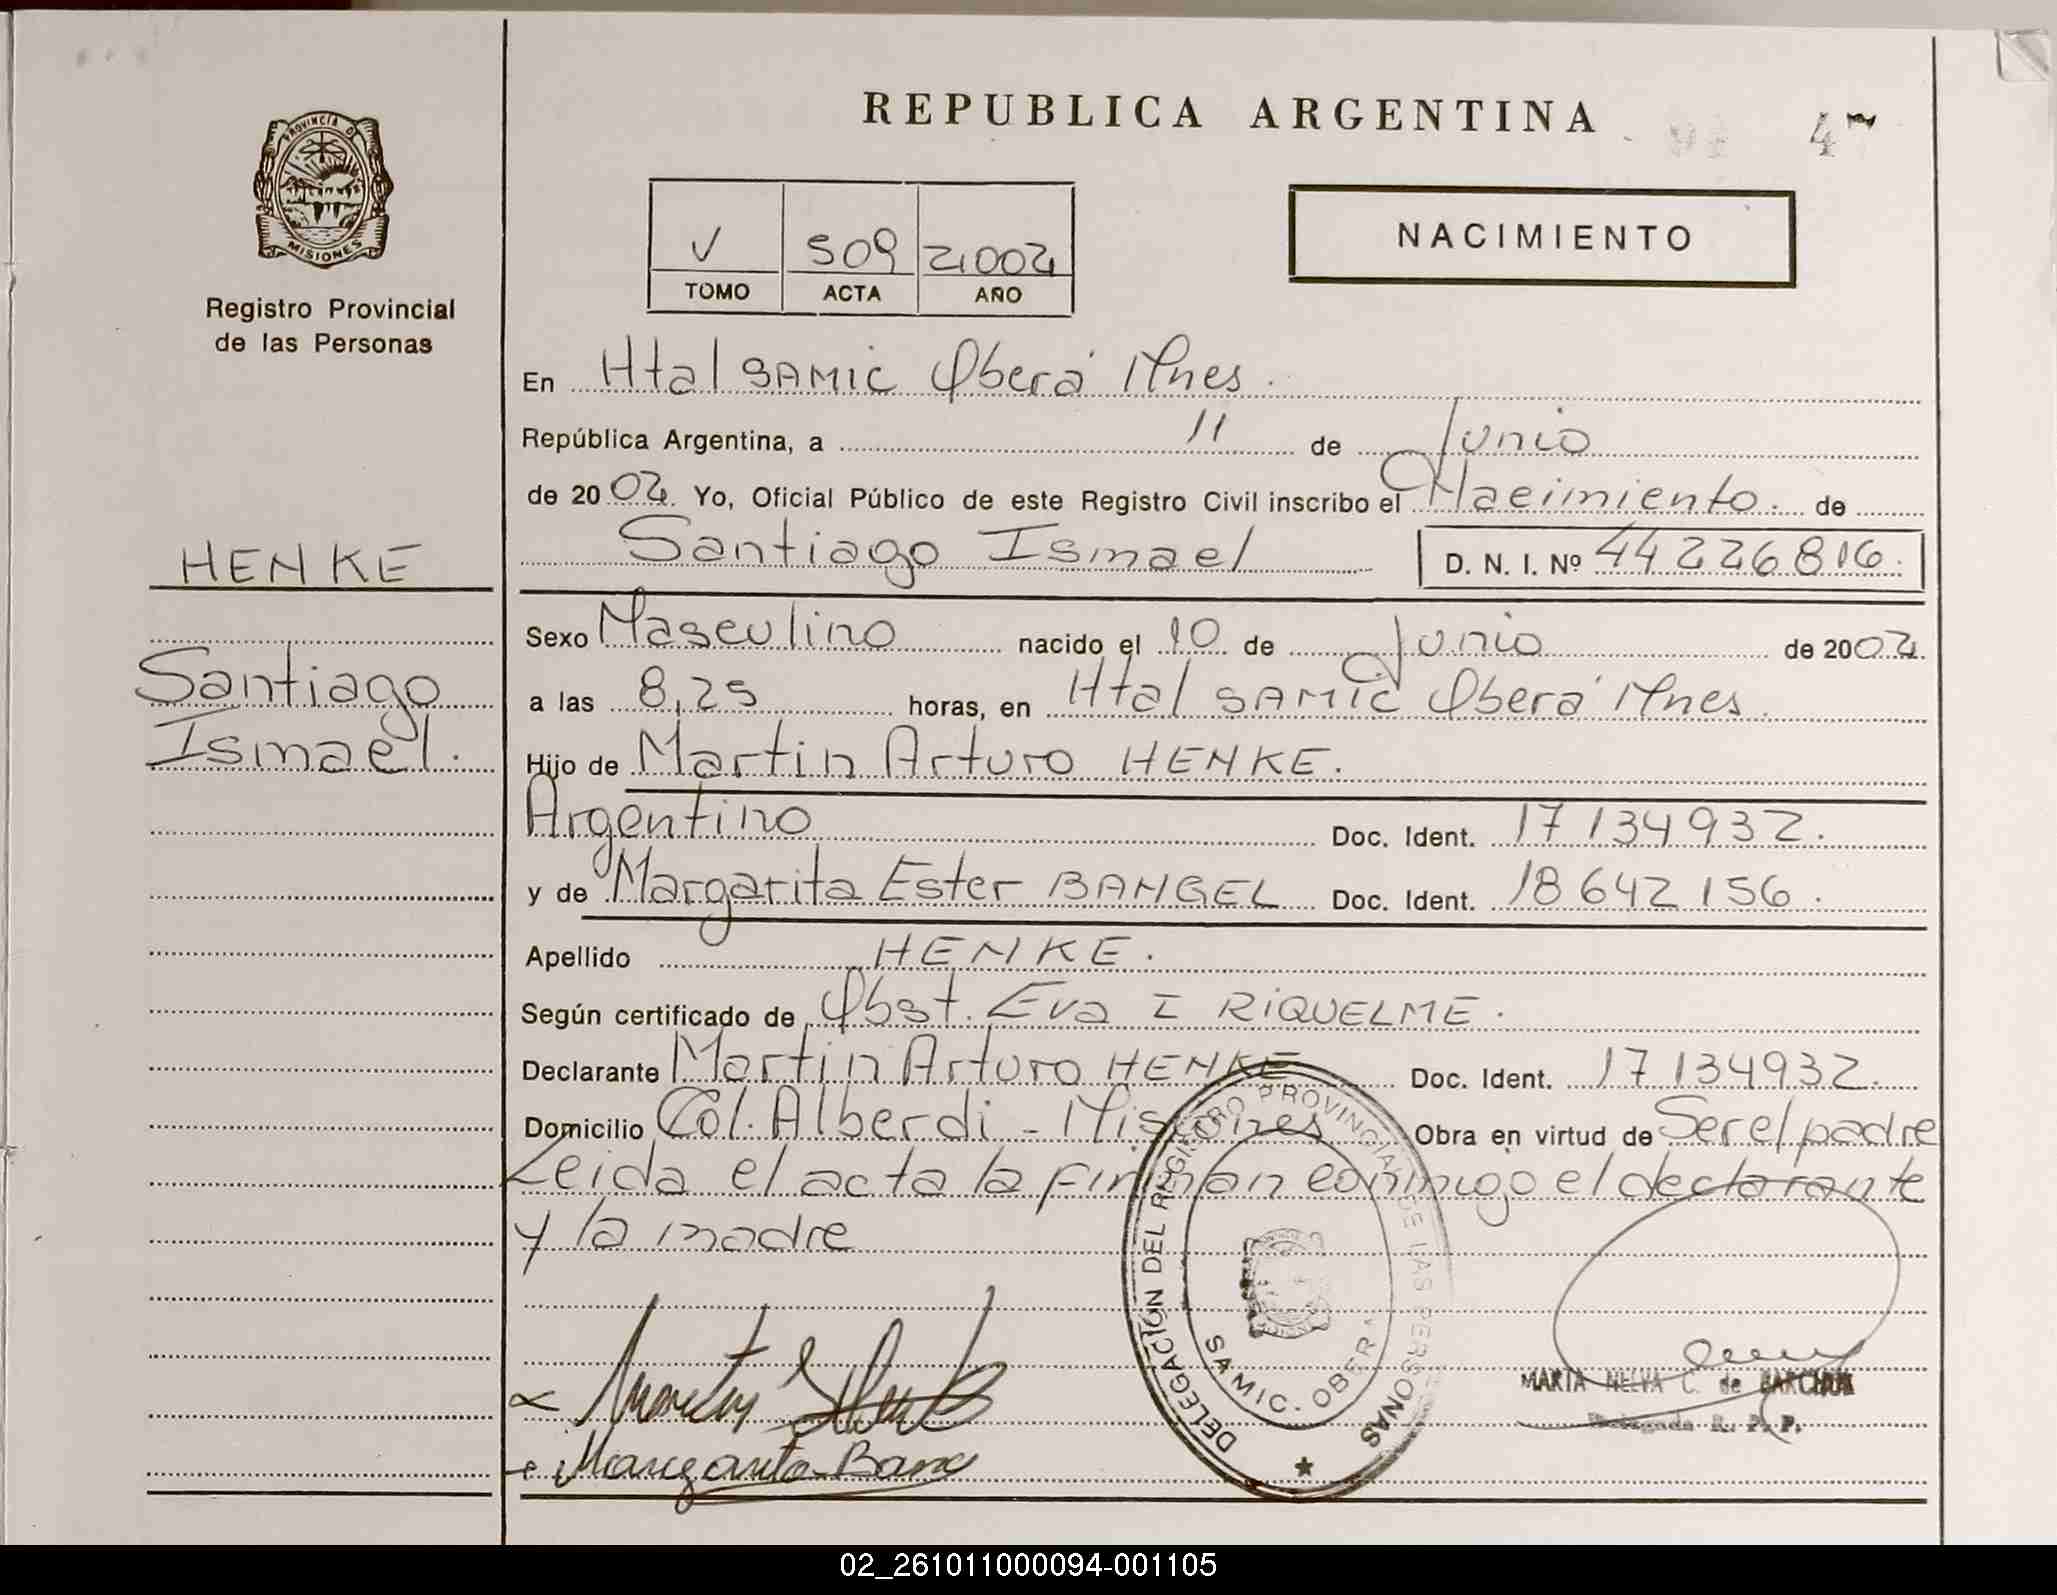 REPUBLICA ARGENTINA
47
PROVINCIA DE
MISIONES
Registro Provincial
de las Personas
V 509 2002
TOMO ACTA AÑO
NACIMIENTO
En Htal SAMIC Oberá Mnes.
República Argentina, a 11 de Junio
de 2002. Yo, Oficial Público de este Registro Civil inscribo el Nacimiento. de
Santiago Ismael D. N. I. Nº 44226816.
HENKE
Santiago
Ismael.
Sexo Masculino nacido el 10 de Junio de 2002.
a las 8,25 horas, en Htal SAMIC Oberá Mnes.
Hijo de Martin Arturo HENKE.
Argentino Doc. Ident. 17134932.
y de Margarita Ester BANGEL Doc. Ident. 18642156.
Apellido HENKE.
Según certificado de Obst. Eva I RIQUELME.
Declarante Martin Arturo HENKE Doc. Ident. 17134932.
Domicilio Col. Alberdi - Misiones Obra en virtud de Ser el padre
Leida el acta la firman conmigo el declarante
y la madre
DELEGACIÓN DEL REGISTRO PROVINCIAL DE LAS PERSONAS
SAMIC. OBERA
Margarita Bang
MARIA NELVA C. de
Delegada R. P. P.
02_261011000094-001105